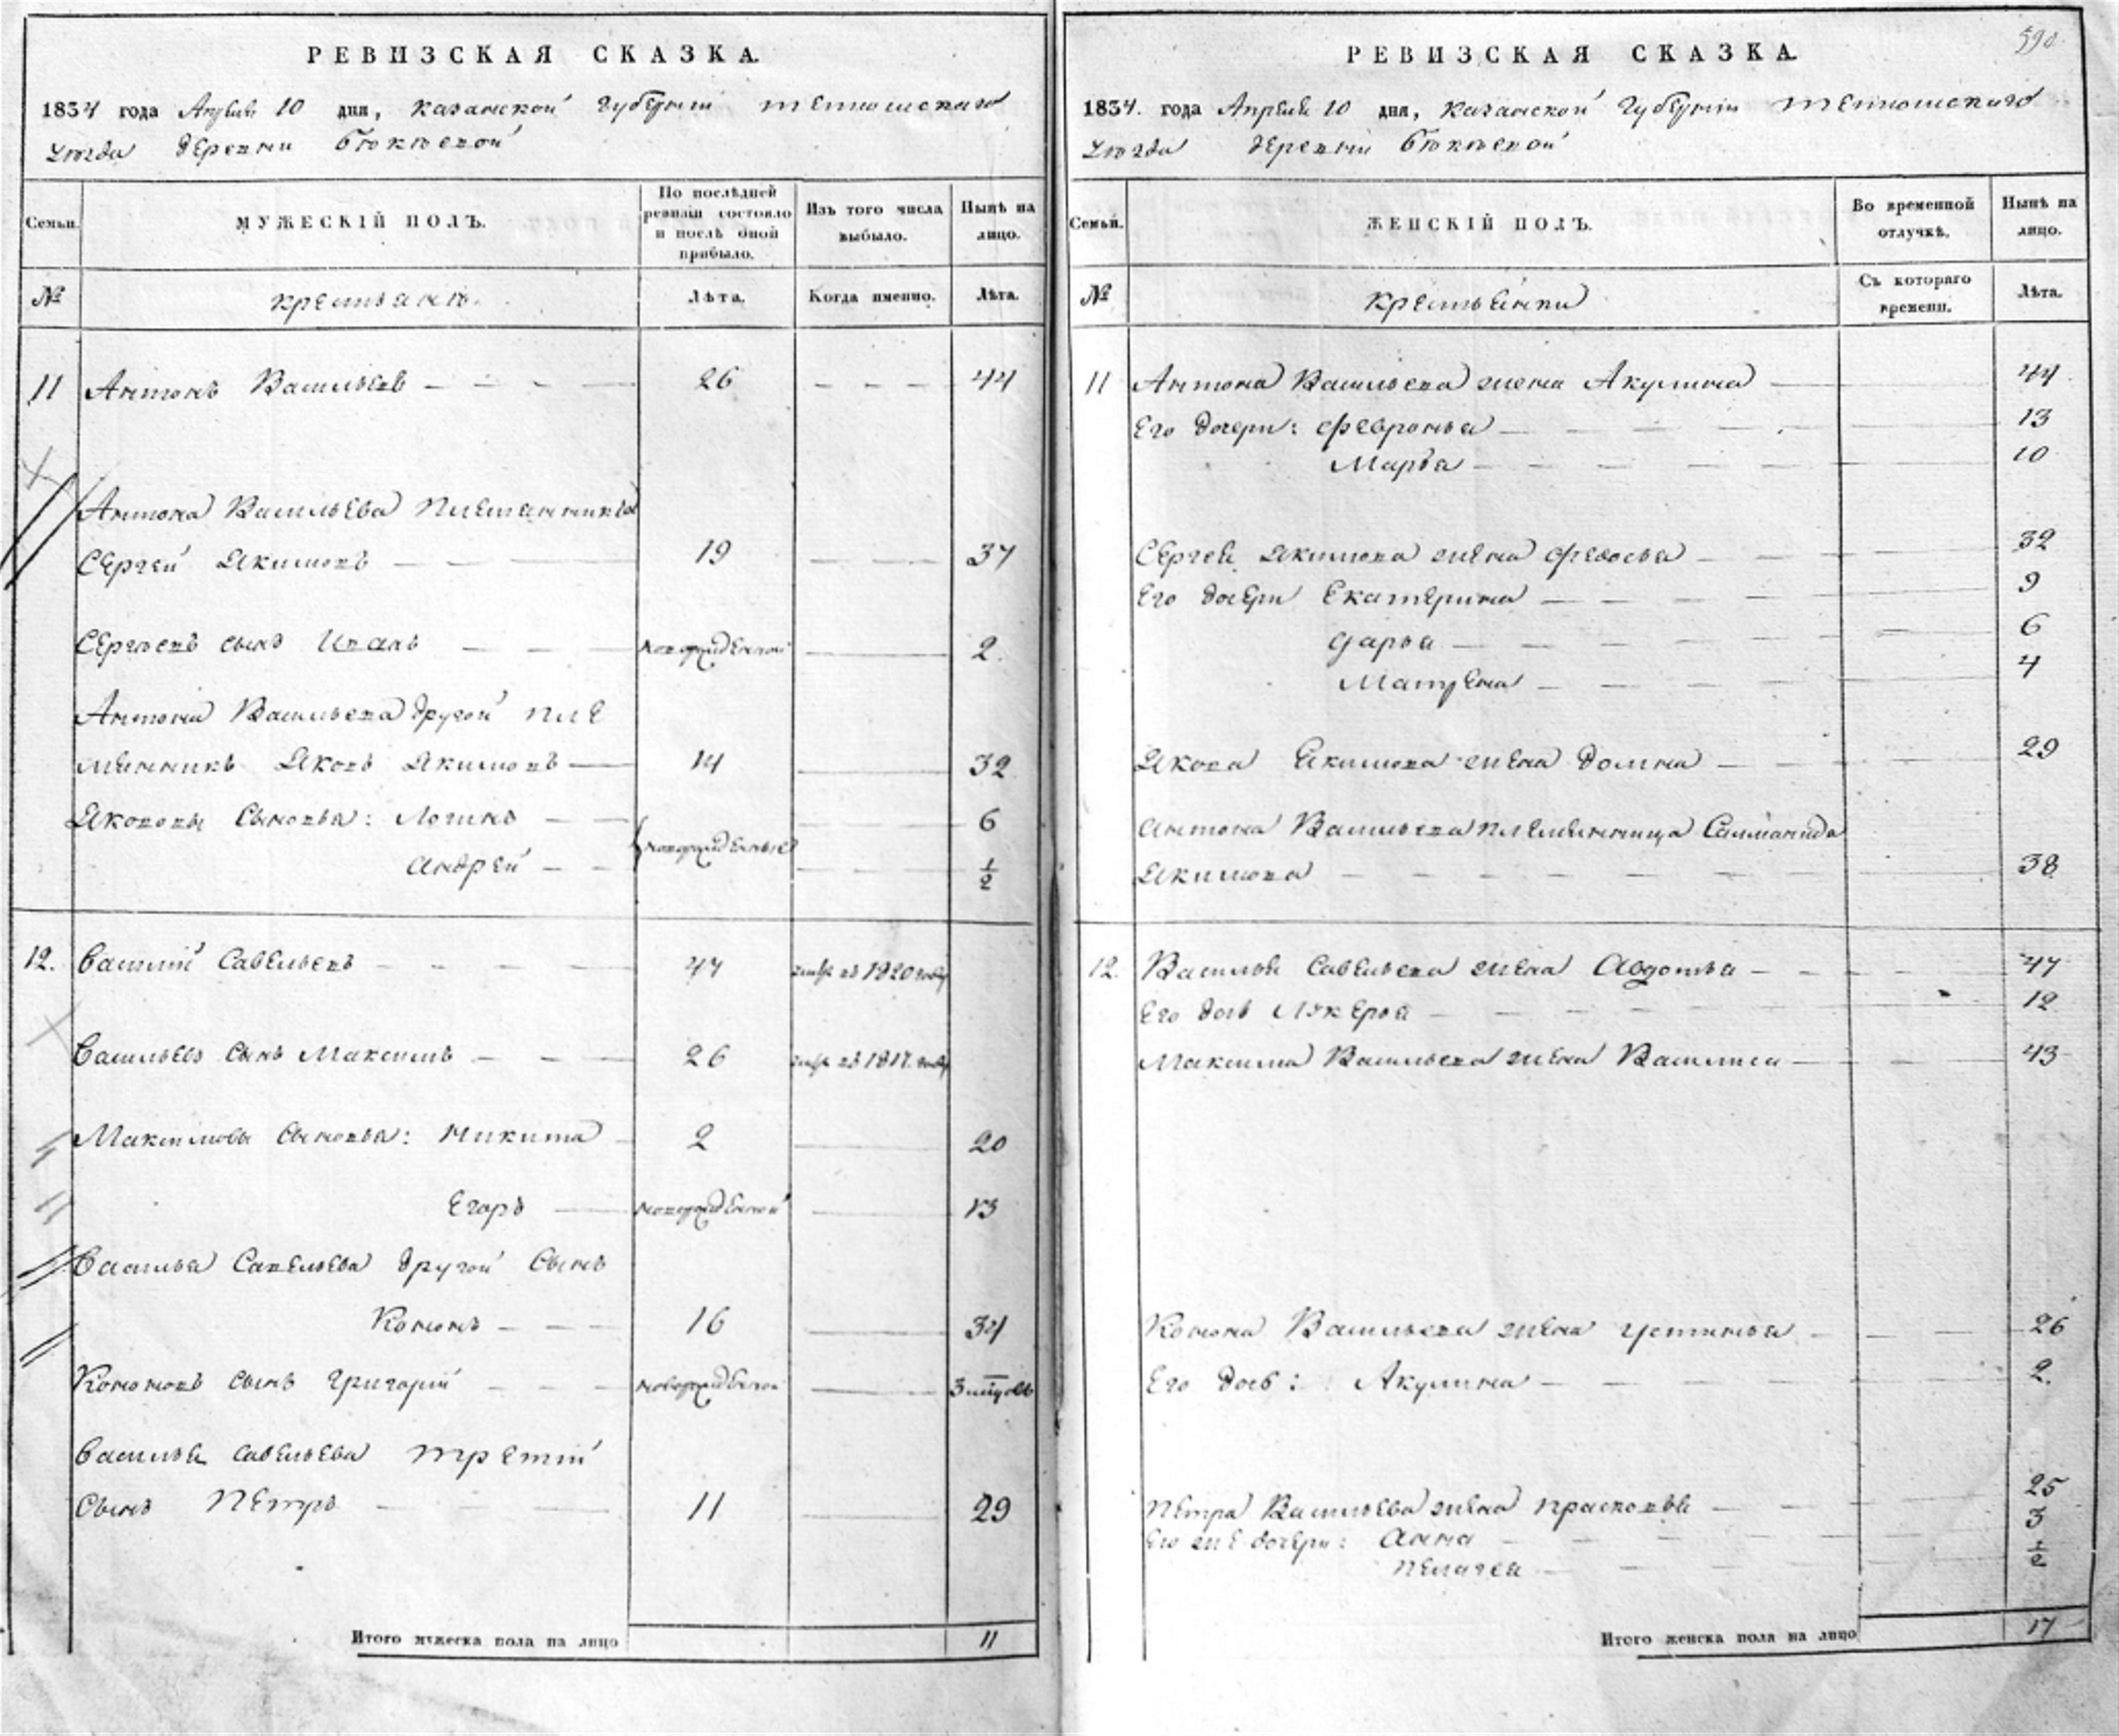 РЕВИЗСКАЯ СКАЗКА.
1834 года Апреля 10 дня, Казанской Губернии Тетюшскаго
уѣзда деревни Бюкѣевой
Семьи.
МУЖЕСКІЙ ПОЛЪ.
По послѣдней ревизіи состояло и послѣ оной прибыло.
Изъ того числа выбыло.
Нынѣ на лицо.
№
крестьянъ.
Лѣта.
Когда именно.
Лѣта.
11 Антонъ Васильевъ 26 44
Антона Васильева племянники
Сергей Якимовъ 19 37
Сергѣевъ сынъ Иванъ новорожденной 2.
Антона Васильева другой пле
мянникъ Яковъ Якимовъ 14 32
Яковы сыновья: Логинъ 6
новорожденные
Андрей 1/2
12. Василий Савельевъ 47 умре въ 1820 году
Васильевъ сынъ Максимъ 26 умре въ 1817. году
Максимовы сыновья: Никита 2 20
Егоръ новорожденной 13
Василья Савельева другой сынъ
Кононъ 16 34
Кононовъ сынъ Григорий новорожденной 3 мѣсѣцовъ
Василья Савельева третий
сынъ Петръ 11 29
Итого мужеска пола на лицо 11
590.
РЕВИЗСКАЯ СКАЗКА.
1834. года Апреля 10 дня, Казанской Губерніи Тетюшскаго
уѣзда деревни Бюкѣевой
Семьи.
ЖЕНСКІЙ ПОЛЪ.
Во временной отлучкѣ.
Нынѣ на лицо.
№
Крестьянки
Съ котораго времени.
Лѣта.
11 Антона Васильева жена Акулина 44
Его дочери: Февронья 13
Марья 10
Сергея Якимова жена Федосья 32
Его дочери Екатерина 9
Дарья 6
Матрена 4
Якова Якимова жена Домна 29
Антона Васильева племянница
Якимова 38
12. Василья Савельева жена Авдотья 47
Его дочь Лукерья 12
Максима Васильева жена Василиса 43
Конона Васильева жена Устинья 26
Его дочь: Акулина 2.
Петра Васильева жена Прасковья 25
Его же дочери: Анна 3
Пелагея 1/2
Итого женска пола на лицо 17